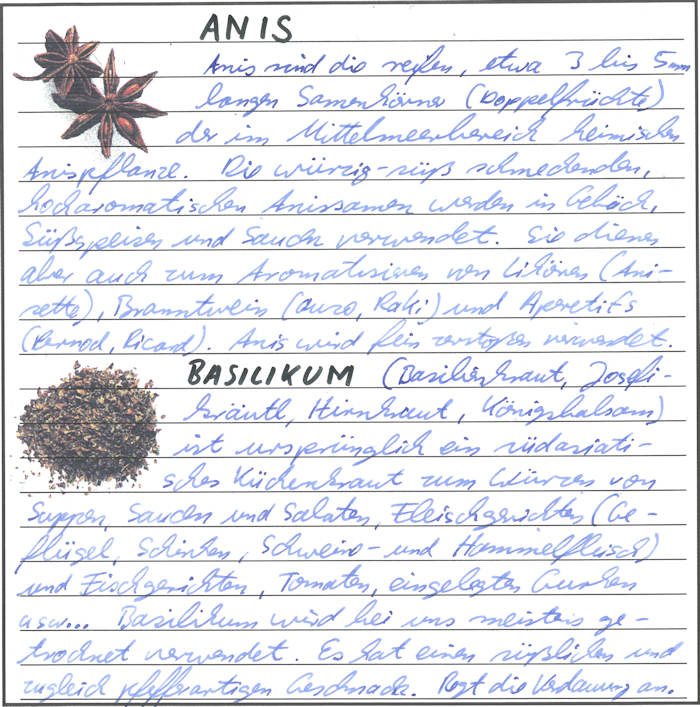 ANIS
Anis sind die reifen, etwa 3 bis 5mm
langen Samenkörner (Doppelfrüchte)
der im Mittelmeerbereich heimischen
Anispflanze. Die würzig-süß schmeckenden,
hocharomatischen Anissamen werden in Gebäck,
Süßspeisen und Saucen verwendet. Sie dienen
aber auch zum Aromatisieren von Likören (Ani-
sette), Branntwein (Ouzo, Raki) und Aperetifs
(Pernod, Ricard). Anis wird fein zerstoßen verwendet.
BASILIKUM (Basilienkraut, Josefi-
kräutl, Hirnkraut, Königsbalsam)
ist ursprünglich ein südasiati-
sches Küchenkraut zum Würzen von
Suppen, Saucen und Salaten, Fleischgerichten (Ge-
flügel, Schinken, Schweins- und Hammelfleisch)
und Fischgerichten, Tomaten, eingelegten Gurken
usw... Basilikum wird bei uns meistens ge-
trocknet verwendet. Es hat einen süßlichen und
zugleich pfefferartigen Geschmack. Regt die Verdauung an.